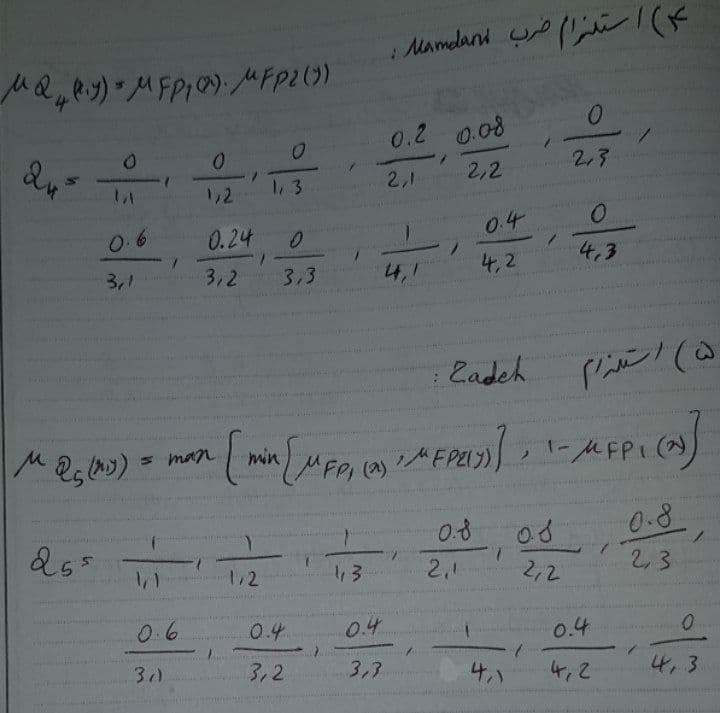 ۴) استلزام ضرب Mamdani :
μQ₄(x,y) = μFP₁(x). μFP2(y)
Q₄ = 0/1,1 , 0/1,2 , 0/1,3 , 0.2/2,1 , 0.08/2,2 , 0/2,3 ,
0.6/3,1 , 0.24/3,2 , 0/3,3 , 1/4,1 , 0.4/4,2 , 0/4,3
۵) استلزام Zadeh :
μQ₅(x,y) = max [ min [ μFP₁(x) , μFP2(y) ] , 1-μFP₁(x) ]
Q5 = 1/1,1 , 1/1,2 , 1/1,3 , 0.8/2,1 , 0.8/2,2 , 0.8/2,3 ,
0.6/3,1 , 0.4/3,2 , 0.4/3,3 , 1/4,1 , 0.4/4,2 , 0/4,3